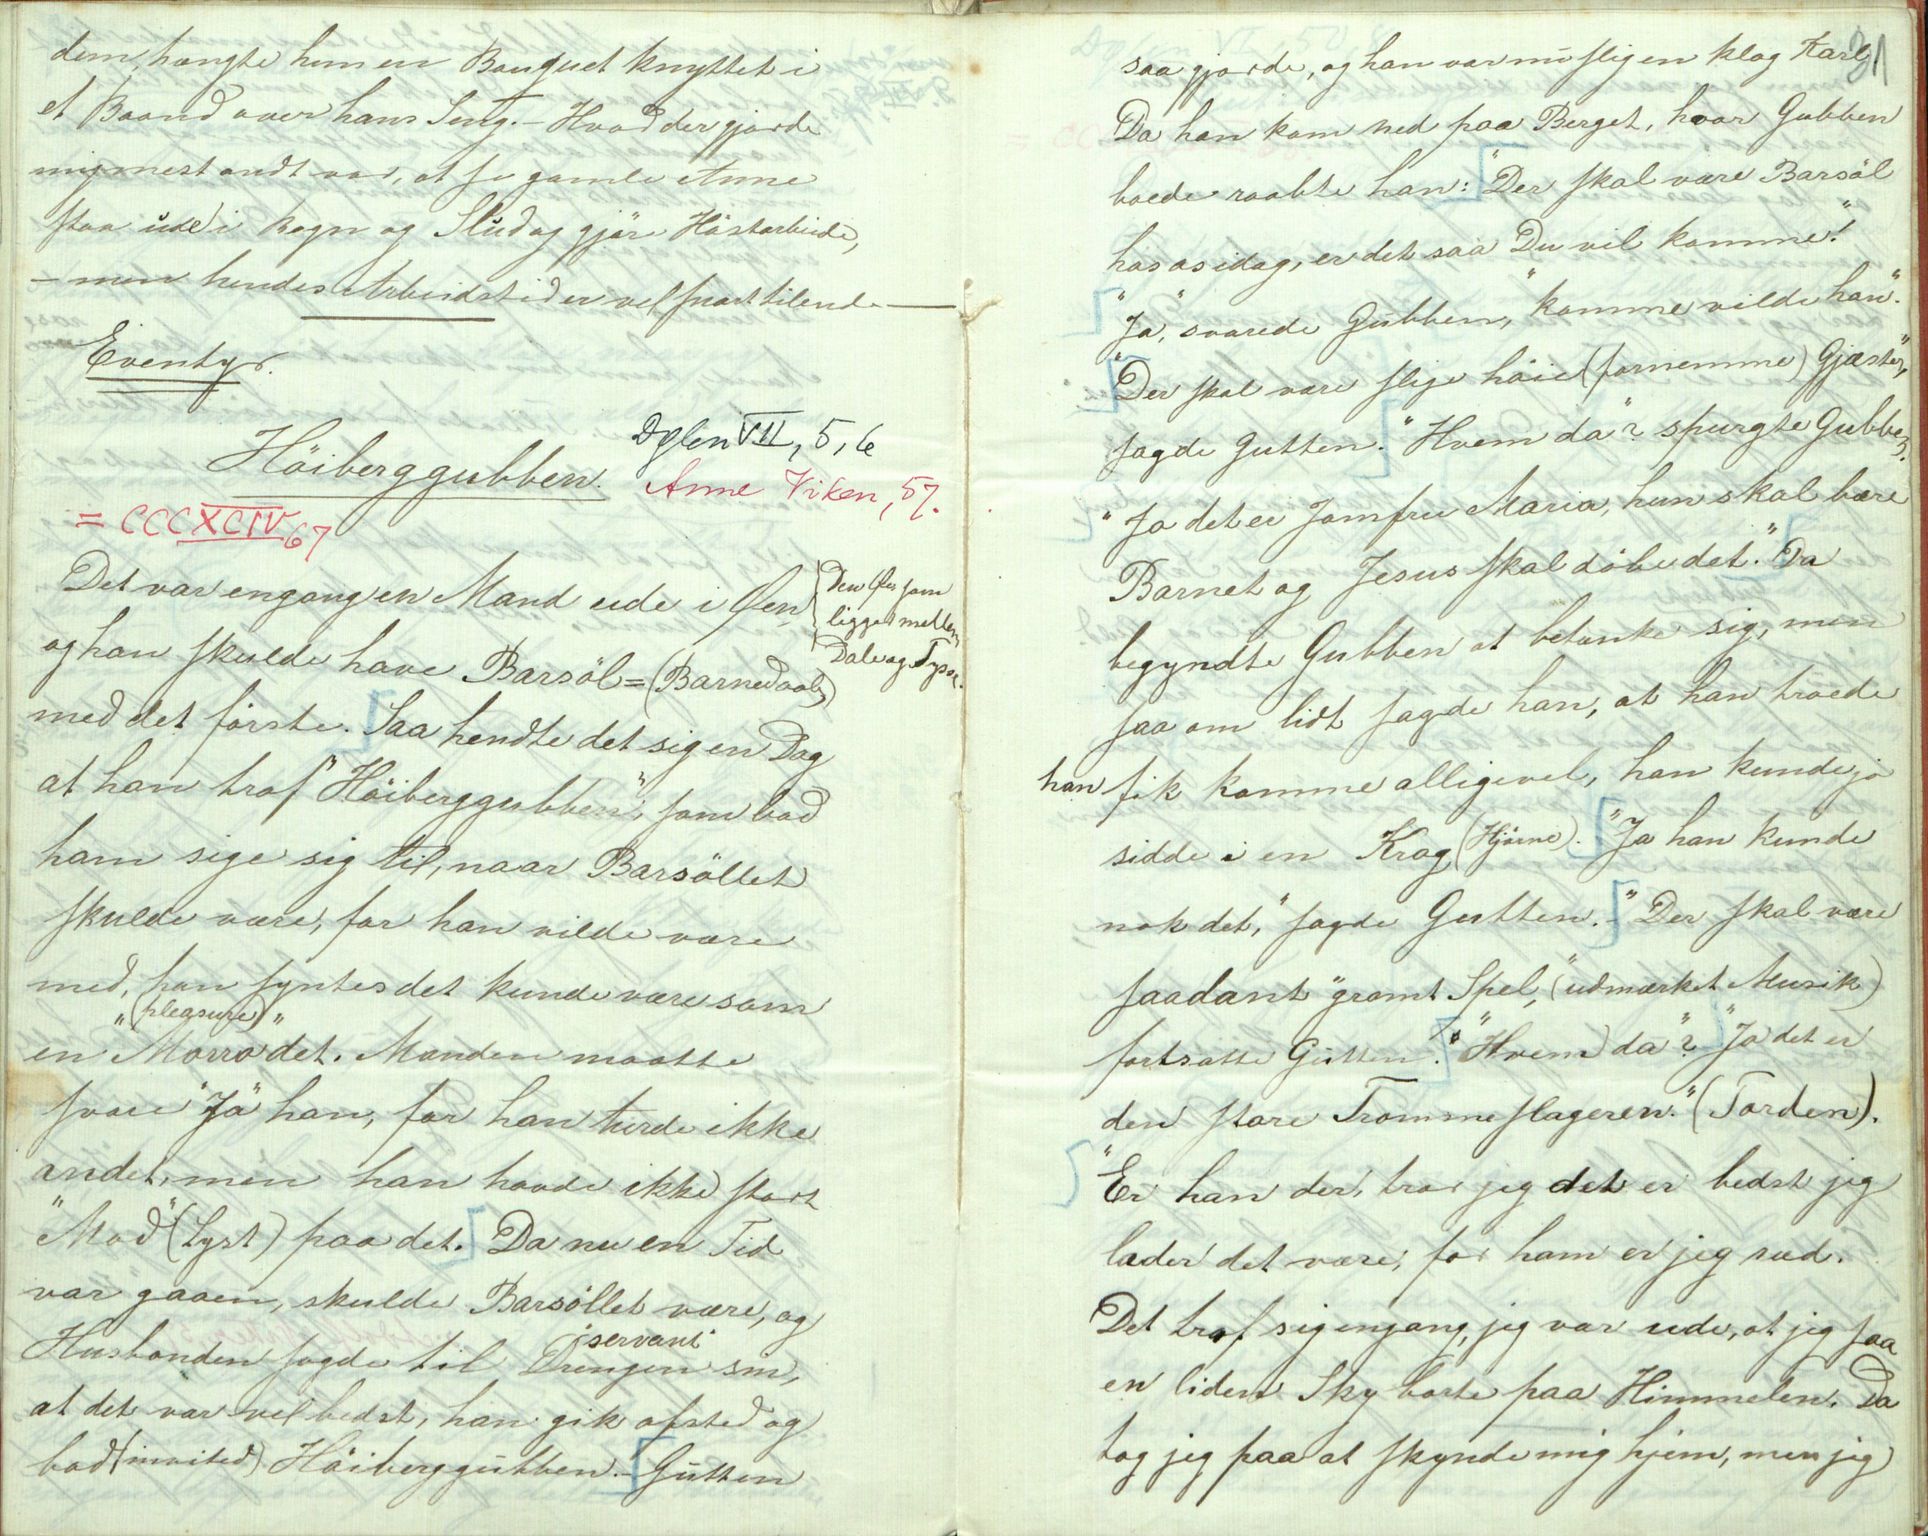 dem, hængte hun en Bouquet knyttet i
et Baand over hans Seng. – Hvad der gjorde
mig mest ondt var, at se gamle Anne
staa ude i Regn og Slud og gjöre Höstarbeide,
– men hendes Arbeidstid er vel snart tilende –
Eventyr.
Höiberggubben.
Dglen VII, 5, 6
Anne Viken, 57.
= CCCXCIV 67
Det var engang en Mand ude i Öen,
(Den Öen som
ligger mellem
Dale og Tysse.)
og han skulde have Barsöl = (Barnedaab)
med det förste. Saa hendte det sig en Dag
at han traf "Höiberggubben", som bad
ham sige sig til, naar Barsöllet
skulde være, for han vilde være
med, han syntes det kunde være som
"(pleasure)"
en Morro det. Manden maatte
svare "Ja" han, for han turde ikke
andet, men han havde ikke stort
"Mod" (Lyst) paa det. Da nu en Tid
var gaaen, skulde Barsöllet være, og
"servant"
Husbonden sagde til Drengen sin,
at det var vel bedst, han gik afsted og
bad (invited) Höiberggubben. – Gutten
31
saa gjorde, og han var nu slig en klog Karl
Da han kom ned paa Berget, hvor Gubben
boede raabte han: "Der skal være Barsöl
hos os idag, er det saa Du vil komme!"
"Ja", svarede Gubben, "komme vilde han".
"Der skal være slige höie (fornemme) Gjæster,"
sagde Gutten. "Hvem da"? spurgte Gubben.
"Ja det er Jomfru Maria, hun skal bære
Barnet og Jesus skal döbe det." Da
begyndte Gubben at betænke sig, men
saa om lidt sagde han, at han troede
han fik komme alligevel, han kunde jo
sidde i en Krog (Hjörne). "Ja han kunde
nok det," sagde Gutten. – "Der skal være
saadant "gromt Spel," (udmærket Musik)
fortsatte Gutten. "Hvem da"? "Ja det er
den store Trommeslageren." (Torden).
"Er han der, tror jeg det er bedst jeg
lader det være, for ham er jeg ræd.
Det traf sig engang, jeg var ude, at jeg saa
en liden Sky borte paa Himmelen. Da
tog jeg paa at skynde mig hjem, men jeg